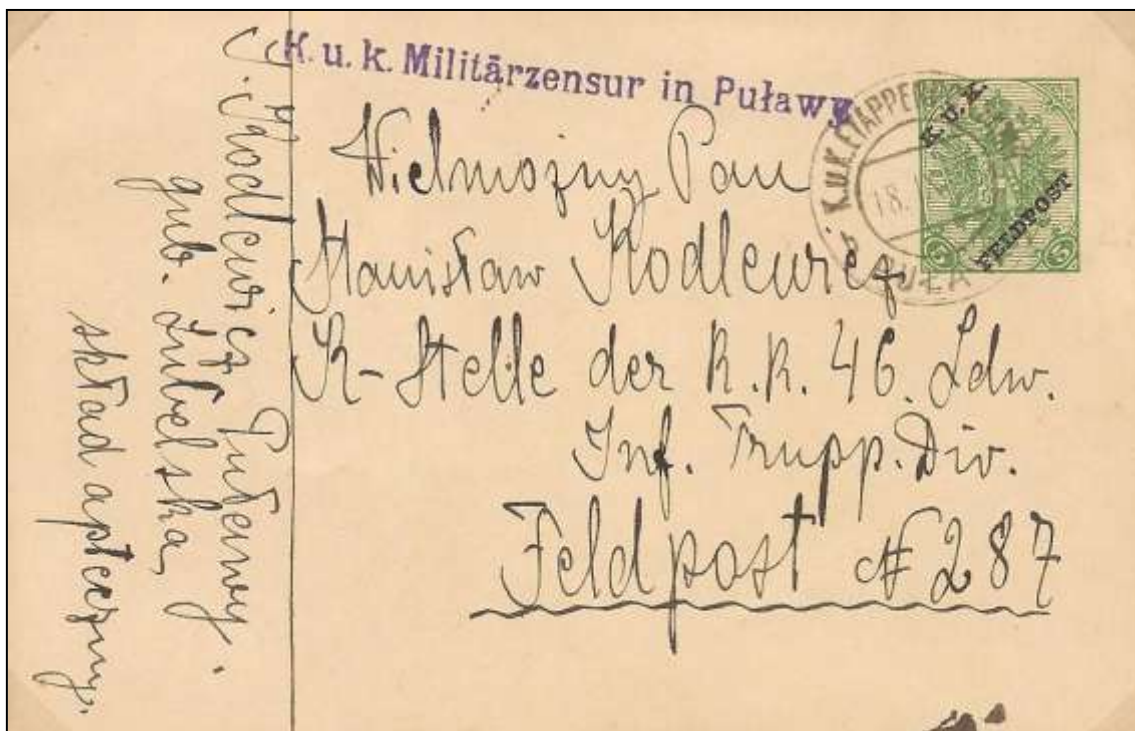 K. u. k. Militärzensur in Puławy
K.U.K. ETAPPEN
18.
PUŁA
K. U. K.
FELDPOST
5 5
Wielmożny Pan
Stanisław Kodlewicz
K-Stelle der K. K. 46. Ldw.
Inf. Trupp. Div.
Feldpost № 287
Kodlewicz Puławy.
gub. Lubelska,
skład apteczny.